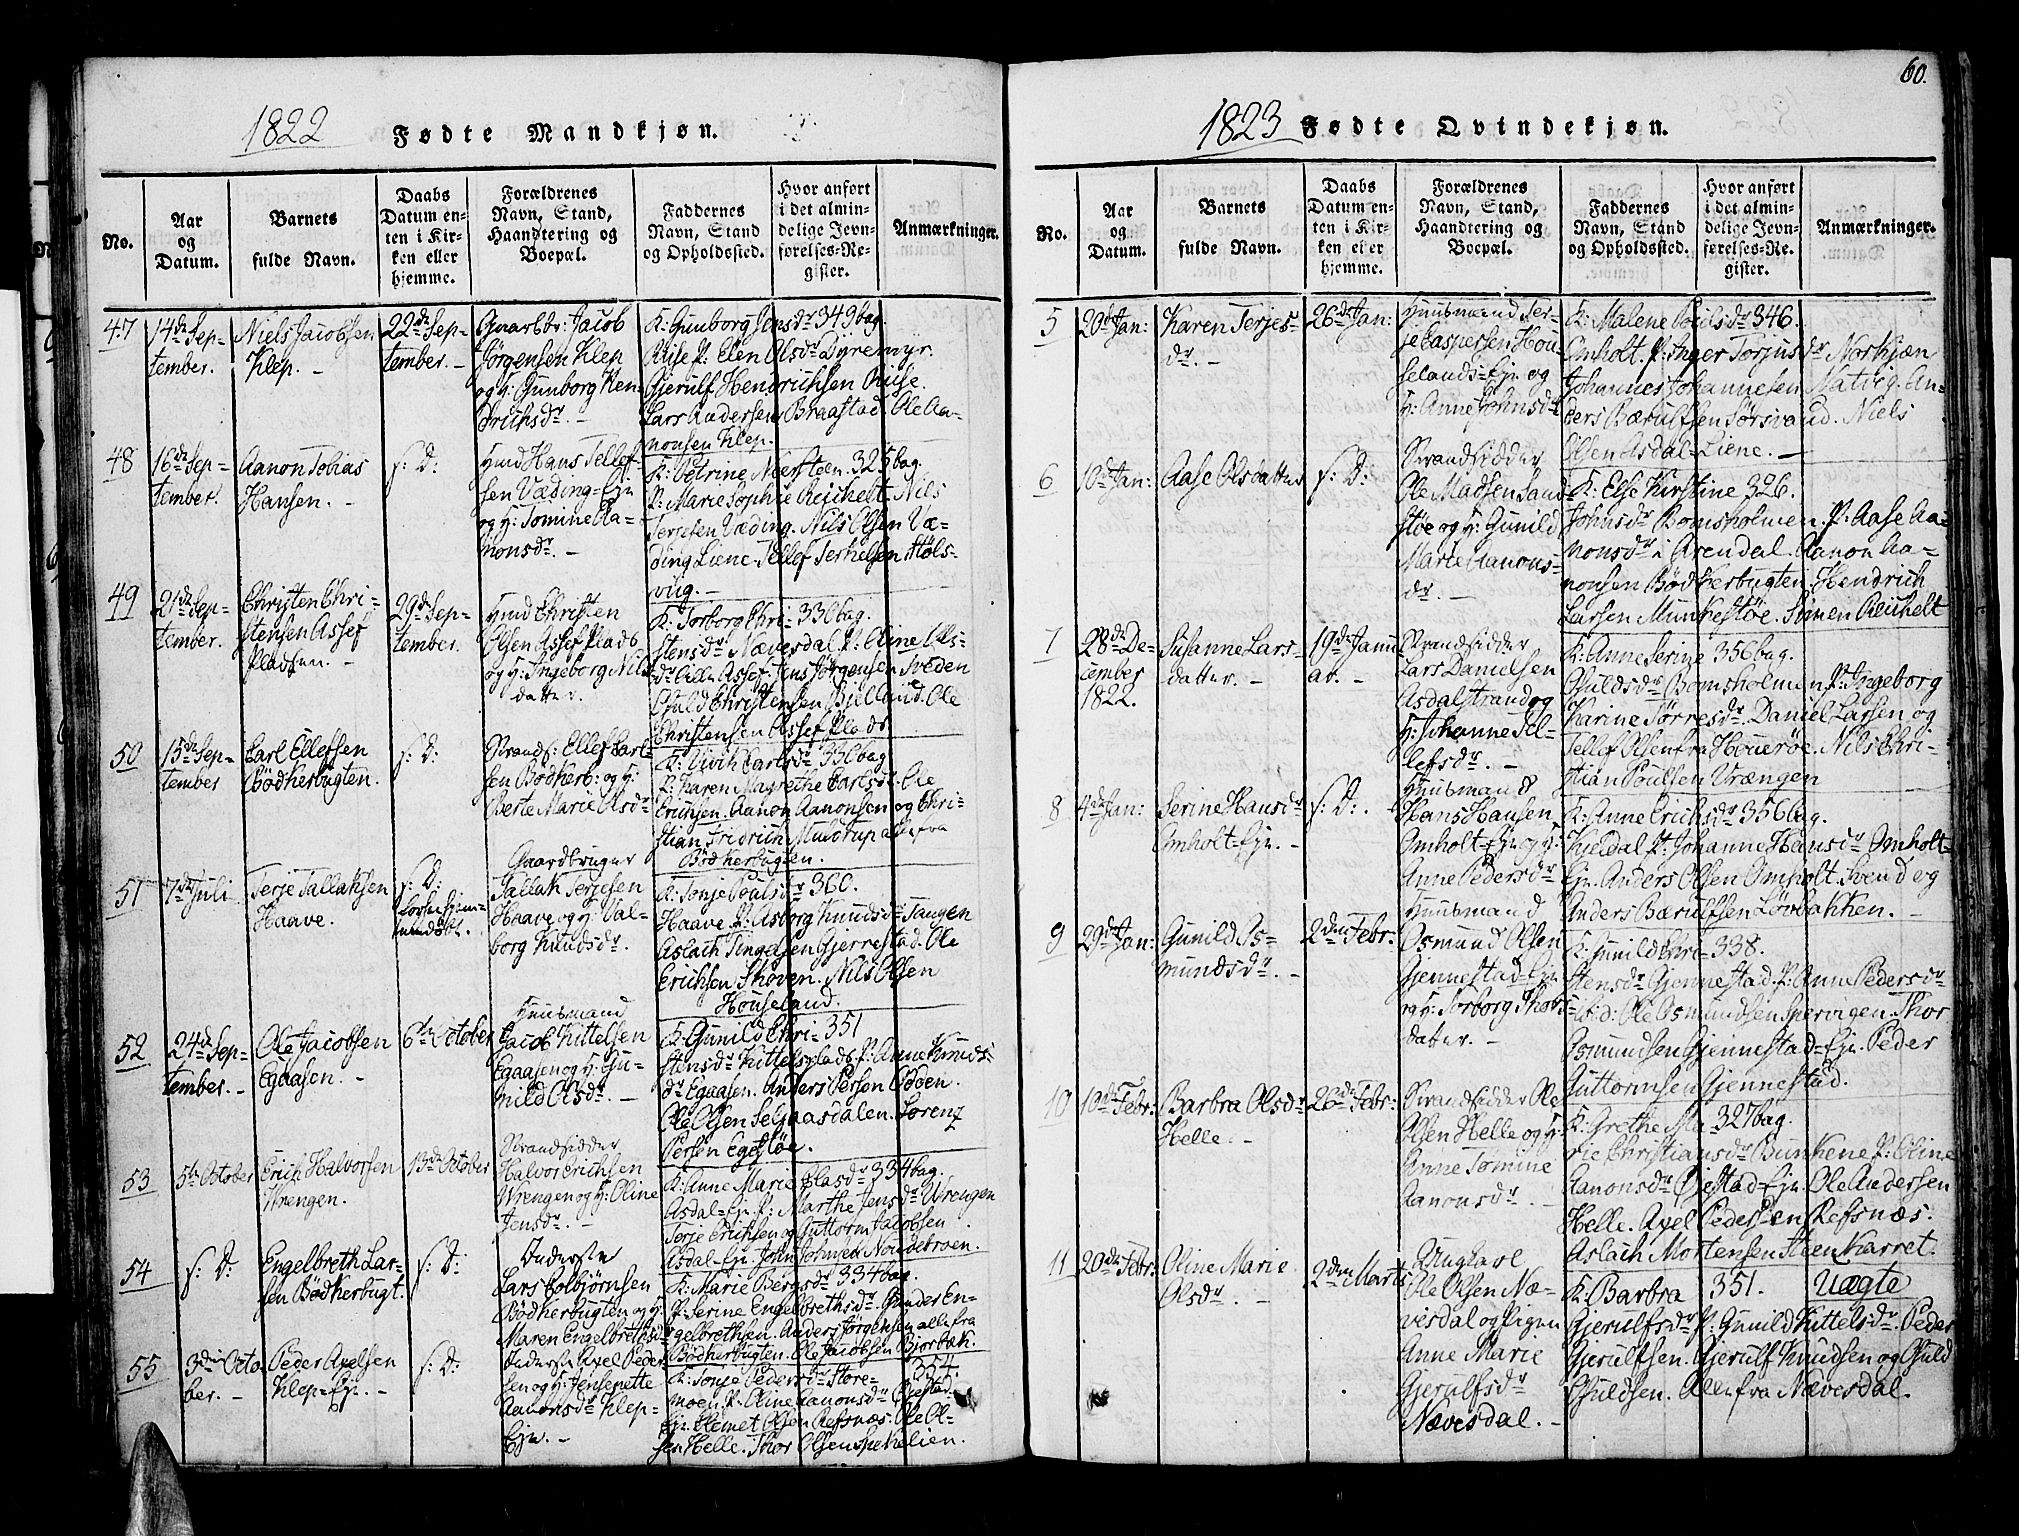 60.
1822 Fødte Mandkjøn.
No.
Aar
og
Datum.
Barnets
fulde Navn.
Daabs
Datum en-
ten i Kir-
ken eller
hjemme.
Forældrenes
Navn, Stand,
Haandtering og
Boepæl.
Faddernes
Navn, Stand
og Opholdssted.
Hvor anført
i det almin-
delige Jevn-
førelses-Re-
gister.
Anmærkninger.
47
14de Sep-
tember.
Niels Jacobsen
Klep. -
22de Sep-
tember. -
Gaardbr: Jacob
Jörgensen Klep
og H: Gunborg Hen-
drichsdr. -
K: Gunborg Jonsdr 349 bag.
Riise P: Elen Olsdr Dyremyr.
Gjerulf Hendrichsen Riise.
Lars Andersen Braastad Ole Aa-
nonsen Klep.
48
16de Sep-
tember.
Aanon Tobias
Hansen. -
s: D:
Huusmd Hans Tellef-
sen Væding-Eje
og H: Tomine Aa-
nonsdr. -
K: Petrine Niersteen 325 bag.
P: Marie Sophie Reichelt Nils
Terjesen Væding. Nils Olsen Væ-
ding Liene Tellef Terkelsen Stöls-
viig. -
49
21de Sep-
tember.
Christen Chri-
stensen Assef
Pladsen. -
29de Sep-
tember.
Huusmd Christen
Olsen Assef Plads
og H: Ingeborg Nils
datter.
K: Torborg Chri- 330 bag.
stensdr Nævesdal P: Oline Ols-
dr Lille Assef. Jens Jörgensen Sveden
Guld Christensen Bjelland. Ole
Christensen Assef Plads
50
15de Sep-
tember
Carl Ellefsen
Bödkerbugten.
s: D:
Strands: Ellef Carl-
sen Bödkerb: og H:
Berte Marie Olsdr
K: Vivik Carlsdr 330 bag
P: Karen Margrethe Carlsdr Ole
Erichsen. Aanon Aanonsen og Chri-
stian Fridrich Muldrup alle fra
Bödkerbugten.
51
7de Juli
Terje Tallaksen
Haave.
s: D:
Gaardbruger
Tallak Terjesen
Haave og H: Val-
borg Knudsdr.
K: Tonje Poulsdr 360.
Haave P: Asborg Knudsdr Tangen
Aslach Tingelsen Gjerrestad. Ole
Erichsen Skoven. Nils Olsen
Houseland.
52
24de Sep-
tember. -
Ole Jacobsen
Egaasen. -
6te October
Huusmand
Jacob Kittelsen
Egaasen og H: Gu-
nild Olsdr. -
K: Gunild Chri- 351
stensdr Kittelsplads P: Anne Knuds-
dr Egaasen. Anders Persen Odden.
Ole Olsen Selgaasdalen. Lorenz
Persen Egestøe.
53
5te October
Erich Halvorsen
Wrengen.
13de October
Strandsidder
Halvor Erichsen
Wrengen og H: Oline
Jensdr. -
K: Anne Marie Olasdr 334 bag.
Asdal-Eje P: Marthe Jensdr Wrengen
Terje Erichsen og Guttorm Jacobsen
Asdal-Eje. John Johnsen Nordebroen.
54
s: D:
Engelbreth Lar-
sen Bödkerbugt.
s: D:
Inderste
Lars Colbjörnsen
Bödkerbugten og H:
Maren Engelbrethsdr
K: Marie Bergsdr 334 bag.
P: Serine Engelbrethsdr. Gunder En-
gelbrethsen. Anders Jörgensen alle fra
Bödkerbugten. Ole Jacobsen Bjorbæk.
55
3die Octo
ber. -
Peder Axelsen
Klep-Eje. -
s: D:
Inderste Axel Peder-
sen og H: Jensepette
Aanonsdr Klep-
Eje. -
K: Tonje Pedersdr Store- 354.
moen. P: Oline Aanonsdr Øjestad
Eje. Clemet Olsen Refsnæs. Ole Ol-
sen Helle. Thor Olsen Spekelien.
1823 Fødte Qvindekjøn.
No.
Aar
og
Datum.
Barnets
fulde Navn.
Daabs
Datum en-
ten i Kir-
ken eller
hjemme.
Forældrenes
Navn, Stand,
Haandtering og
Boepæl.
Faddernes
Navn, Stand
og Opholdssted.
Hvor anført
i det almin-
delige Jevn-
førelses-Re-
gister.
Anmærkninger.
5
20de Jan:
Karen Terjes-
dr. -
26de Jan:
Huusmand Ter-
je Caspersen Hou-
selands-Eje og
H: Anne Johnsdr
K: Malene Poulsdr 346.
Omholt. P: Inger Torjusdr Norkjæn
Johannes Johannesen Natvig. An-
ders Bærulfsen Sørsvand. Niels
Olsen Asdal-Liene. -
6
10de Jan:
Aase Olsdatter
s: D:
Strandsidder
Ole Madsen Sand-
støe og H: Gunild
Marie Aanons-
dr. -
K: Else Kirstine 326.
Johnsdr Bomsholmen. P: Aase Aa-
nonsdr i Arendal. Aanon Aa-
nonsen Bödkerbugten. Hendrich
Larsen Munkestøe. Simen Reichelt
7
28de De-
cember
1822.
Susanne Lars-
datter. -
19de Janu
ar. -
Strandsidder
Lars Danielsen
Asdalstrand og
H: Johanne Tel-
lefsdr. -
K: Anne Serine 356 bag.
Guldsdr Bomsholmen P: Ingeborg
Karine Tørresdr. Daniel Larsen og
Tellef Olsen fra Houerøe. Nils Chri-
stian Poulsen Vrængen
8
4de Jan:
Serine Hansdr
Omholt-Eje. -
s: D:
Huusmand
Hans Hansen
Omholt-Eje og H:
Anne Pedersdr
K: Anne Erichsdr 356 bag.
Kjeldal P: Johanne Hansdr Omholt-
Eje. Anders Olsen Omholt. Svend og
Anders Bærulfsen Løvbakken. -
9
29de Jan:
Gunild Os-
mundsdr. -
2den Febr:
Huusmand
Osmund Olsen
Gjennestad-Eje
og H: Torborg Thors-
datter. -
K: Gunild Chri- 338.
stensdr Gjennestad. P: Anne Pedersdr
ibid: Ole Osmundsen Spervigen. Thor
Osmundsen Gjennestad-Eje. Peder
Guttormsen Gjennestad.
10
10de Febr:
Barbra Olsdr
Helle. -
20de Febr:
Strandsidder Ole
Olsen Helle og H:
Anne Tomine
Aanonsdr -
K: Grethe Ma- 327 bag.
rie Christiansdr Bunkene P: Oline
Aanonsdr Øjestad-Eje. Ole Andersen
Helle. Axel Pedersen Refsnæs.
Aslach Mortensen Steen Karret.
11
20de Febr:
Oline Marie
Olsdr. -
2den Marts
Ungkarl
Ole Olsen Næ-
vesdal og Pigen
Anne Marie
Gjerulfsdr
Nævesdal. -
K: Barbra 351. Uægte
Gjerulfsdr P: Gunild Kittelsdr. Peder
Gjerulfsen. Gjerulf Knudsen og Guld
Guldsen. Alle fra Nævesdal.